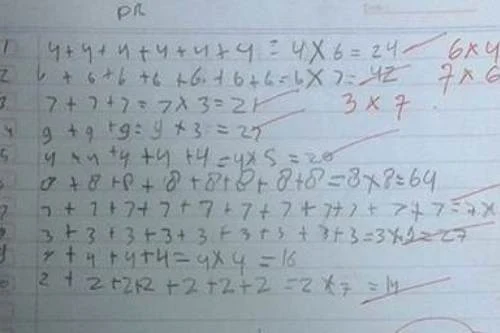 PR
1 4+4+4+4+4+4 = 4 X 6 = 24 6 x 4
2 6 + 6 + 6 + 6 + 6 + 6 + 6 = 6 X 7 = 42 7 x 6
3 7 + 7 + 7 = 7 X 3 = 21 3 x 7
4 9 + 9 + 9 = 9 x 3 = 27
5 4 + 4 + 4 + 4 + 4 = 4 x 5 = 20
8 + 8 + 8 + 8 + 8 + 8 + 8 + 8 = 8 x 8 = 64
7 + 7 + 7 + 7 + 7 + 7 + 7 + 7 + 7 + 7 + 7 = 7 x
3 + 3 + 3 + 3 + 3 + 3 + 3 + 3 + 3 = 3 x 9 = 27
4 + 4 + 4 + 4 = 4 x 4 = 16
2 + 2 + 2 + 2 + 2 + 2 + 2 = 2 x 7 = 14